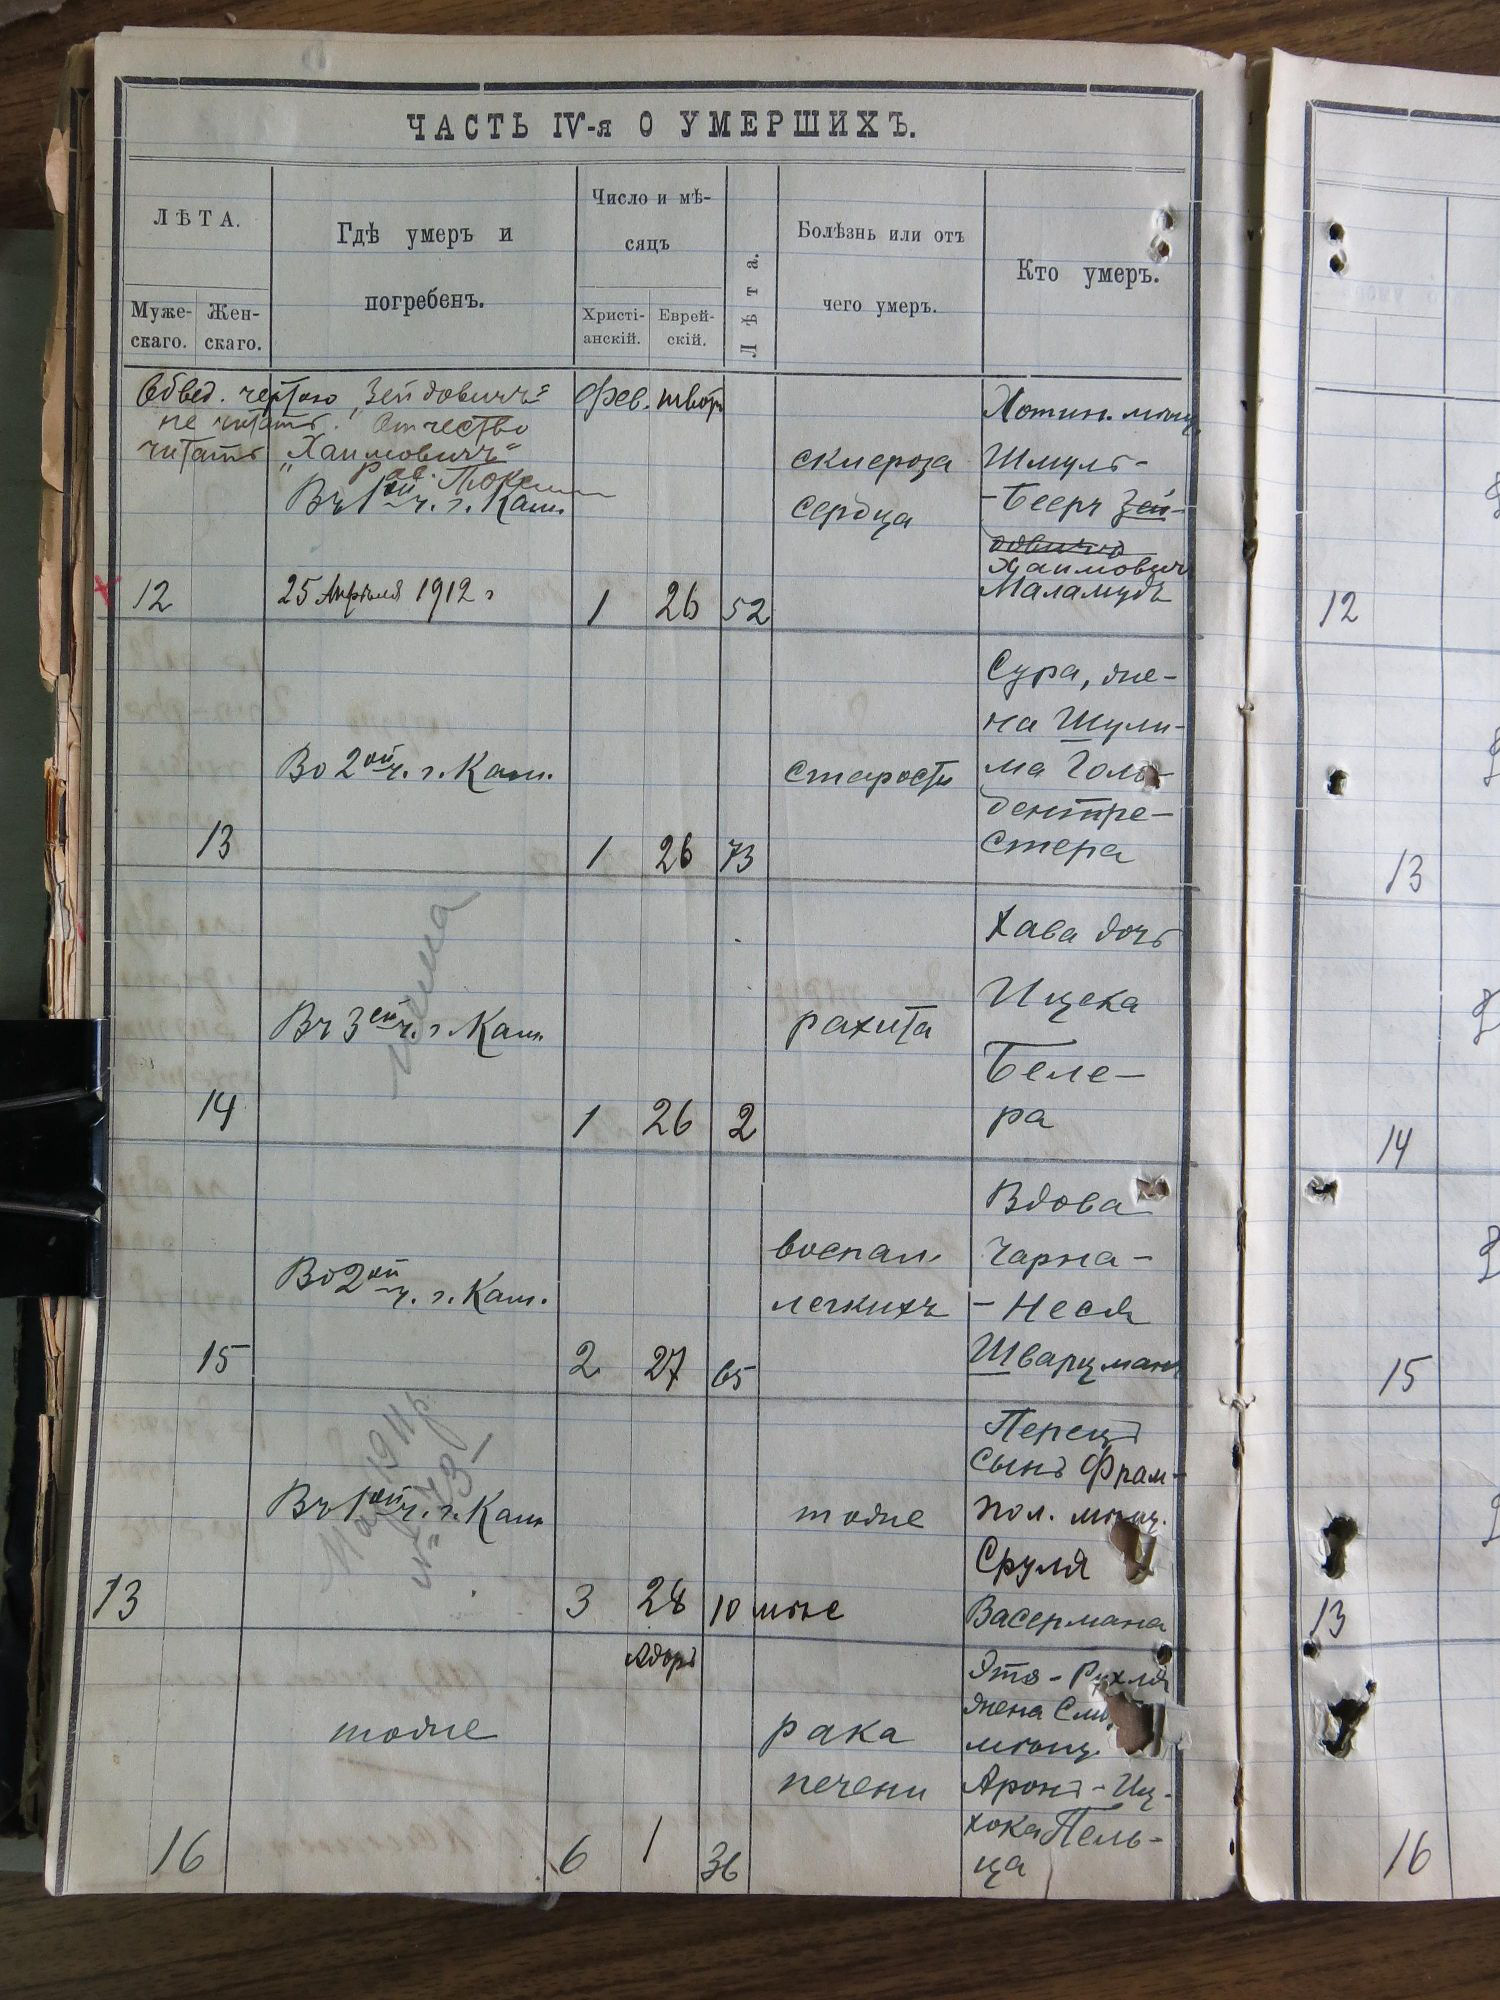 ЧАСТЬ IV-я О УМЕРШИХЪ.
ЛѢТА.
Муже-
скаго.
Жен-
скаго.
Гдѣ умеръ и
погребенъ.
Число и мѣ-
сяцъ
Христі-
анскій.
Еврей-
скій.
Лѣта.
Болѣзнь или отъ
чего умеръ.
Кто умеръ.
Обвед. чертою „Зейдовичъ“
не читать. Отчество
читать „Хаимовичъ“
Раб.
25 Апрѣля 1912 г
Въ 1ой ч. г. Кам.
12
Фев.
1
26
52
склероза
сердца
Хотин. мѣщ.
Шмуль-
-Бееръ Зей-
довичъ
Хаимовичъ
Маламудъ
13
Во 2ой ч. г. Кам.
1
26
73
старости
Сура, же-
на Шули-
ма Голь-
дентре-
стера
14
Въ 3ей ч. г. Кам.
1
26
2
рахита
Хава дочь
Ицека
Беле-
ра
15
Во 2ой ч. г. Кам.
2
27
65
воспал.
легкихъ
Вдова
Чарна-
-Неся
Шварцман
13
Въ 1ой ч. г. Кам.
3
28
10 мѣс
тоже
Перецъ
сынъ Фрам-
пол. мѣщ.
Сруля
Васермана
16
тоже
Адоръ
6
1
36
рака
печени
Этя-Рухля
жена
мѣщ.
Аронъ-Иц-
хока Пель-
ца
12
13
14
15
13
16